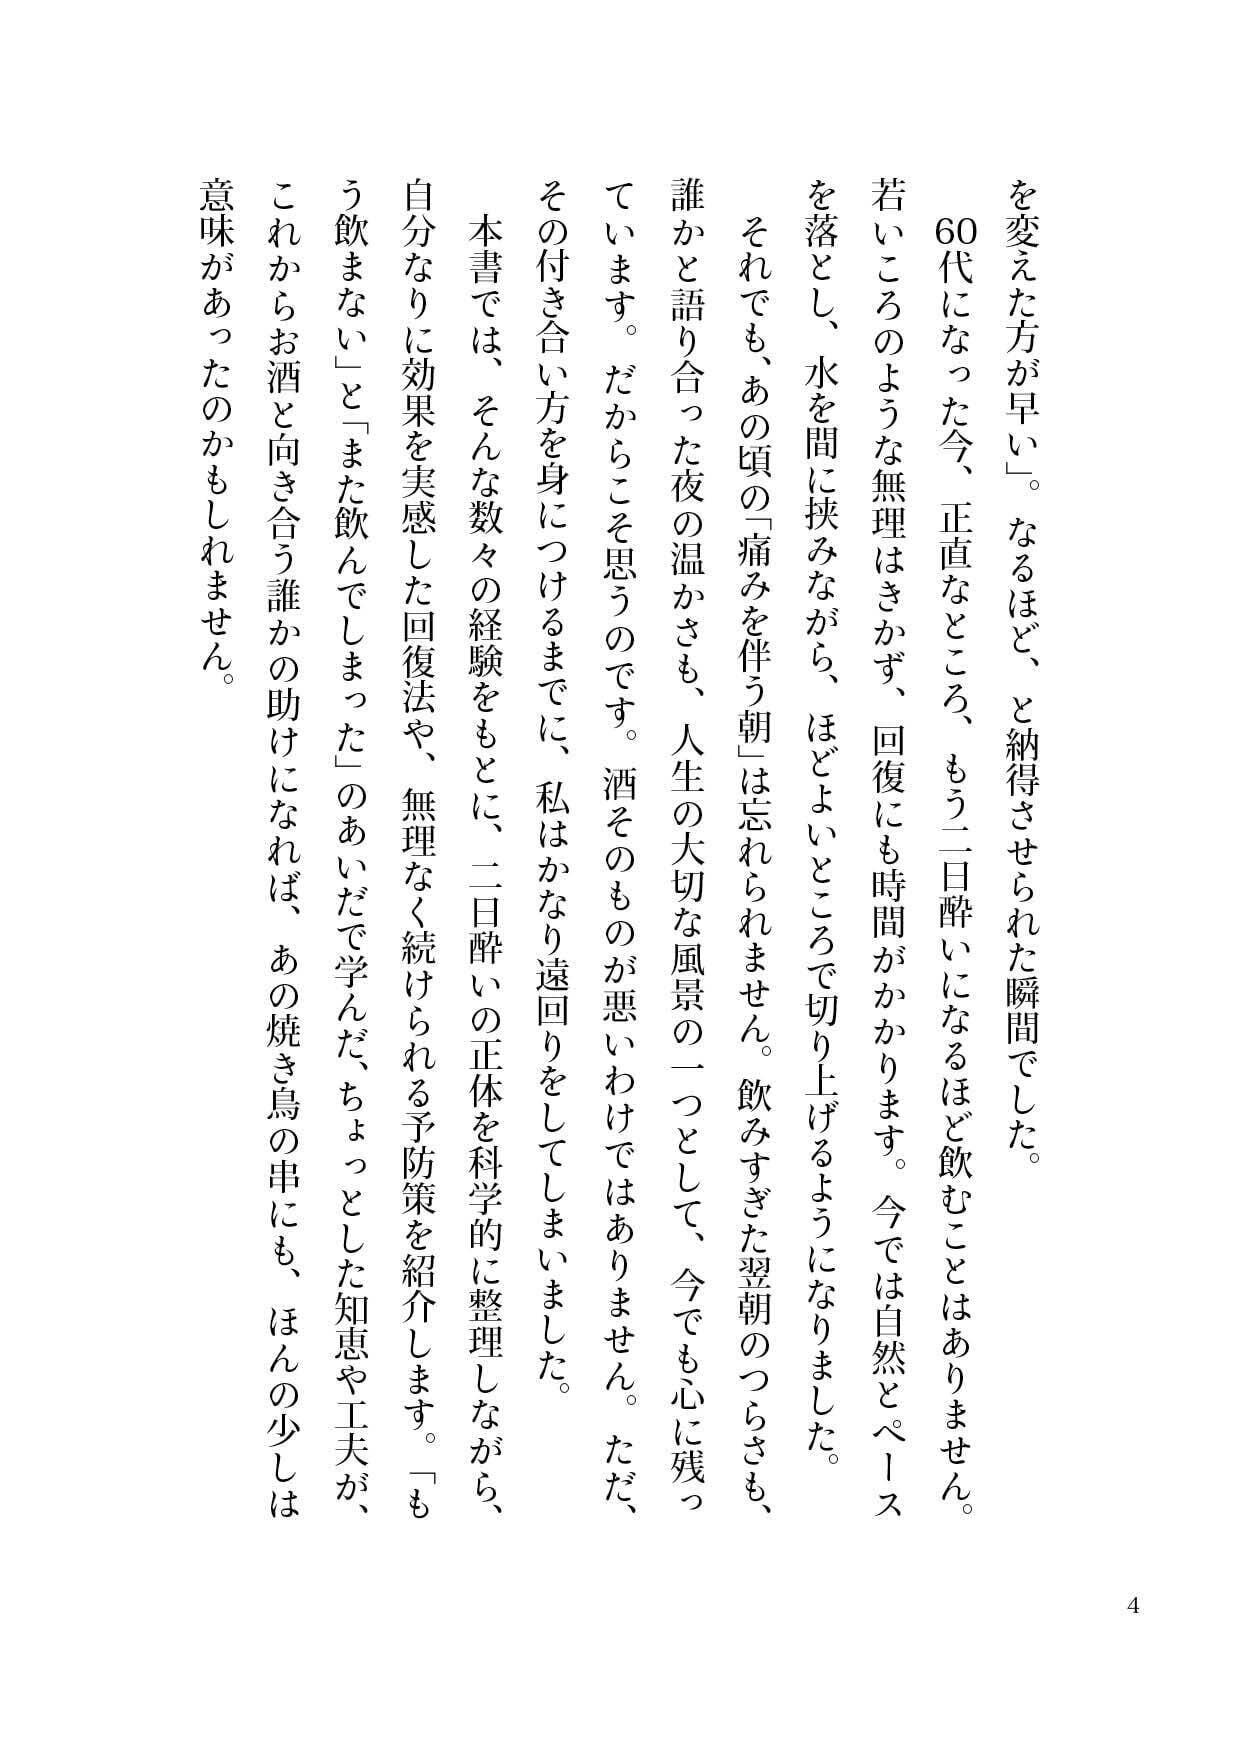 を変えた方が早い」。なるほど、と納得させられた瞬間でした。
60代になった今、正直なところ、もう二日酔いになるほど飲むことはありません。
若いころのような無理はきかず、回復にも時間がかかります。今では自然とペース
を落とし、水を間に挟みながら、ほどよいところで切り上げるようになりました。
それでも、あの頃の「痛みを伴う朝」は忘れられません。飲みすぎた翌朝のつらさも、
誰かと語り合った夜の温かさも、人生の大切な風景の一つとして、今でも心に残っ
ています。だからこそ思うのです。酒そのものが悪いわけではありません。ただ、
その付き合い方を身につけるまでに、私はかなり遠回りをしてしまいました。
本書では、そんな数々の経験をもとに、二日酔いの正体を科学的に整理しながら、
自分なりに効果を実感した回復法や、無理なく続けられる予防策を紹介します。「も
う飲まない」と「また飲んでしまった」のあいだで学んだ、ちょっとした知恵や工夫が、
これからお酒と向き合う誰かの助けになれば、あの焼き鳥の串にも、ほんの少しは
意味があったのかもしれません。
4